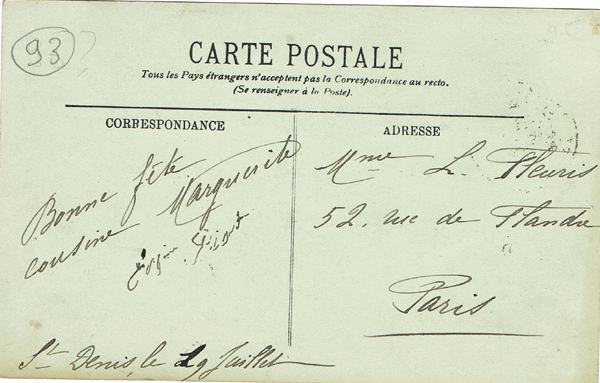 93
CARTE POSTALE
Tous les Pays étrangers n'acceptent pas la Correspondance au recto.
(Se renseigner à la Poste).
CORRESPONDANCE
Bonne fête
cousine Marguerite
St Denis, le 29 Juillet
ADRESSE
Mme L. Fleuris
52, rue de Flandre
Paris